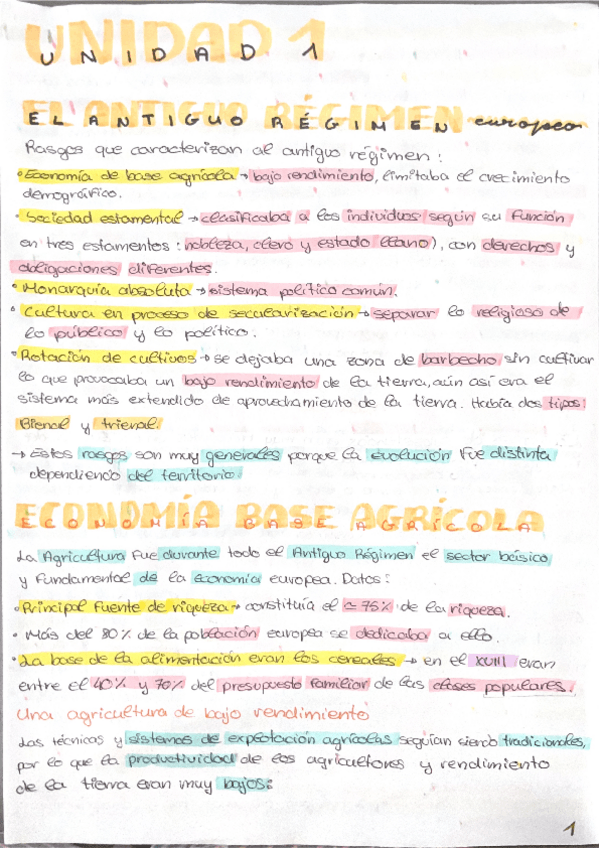 UNIDAD 1
EL ANTIGUO RÉGIMEN europeo
Rasgos que caracterizan al antiguo régimen:
• Economía de base agrícola → bajo rendimiento, limitaba el crecimiento
demográfico.
• Sociedad estamental → clasificaba a los individuos según su función
en tres estamentos: nobleza, clero y estado llano), con derechos y
obligaciones diferentes.
• Monarquía absoluta → sistema político común.
• Cultura en proceso de secularización → separar lo religioso de
lo público y lo político.
• Rotación de cultivos → se dejaba una zona de barbecho sin cultivar
lo que provocaba un bajo rendimiento de la tierra, aún así era el
sistema más extendido de aprovechamiento de la tierra. Había dos tipos:
Bienal y trienal.
→ Estos rasgos son muy generales porque la evolución fue distinta
dependiendo del territorio.
ECONOMÍA BASE AGRÍCOLA
La Agricultura fue durante todo el Antiguo Régimen el sector básico
y fundamental de la economía europea. Datos:
• Principal fuente de riqueza → constituía el ≃ 75% de la riqueza.
• Más del 80% de la población europea se dedicaba a ello.
• La base de la alimentación eran los cereales → en el XVIII eran
entre el 40% y 70% del presupuesto familiar de las clases populares.
Una agricultura de bajo rendimiento
Las técnicas y sistemas de explotación agrícolas seguían siendo tradicionales,
por lo que la productividad de los agricultores y rendimiento
de la tierra eran muy bajos:
1